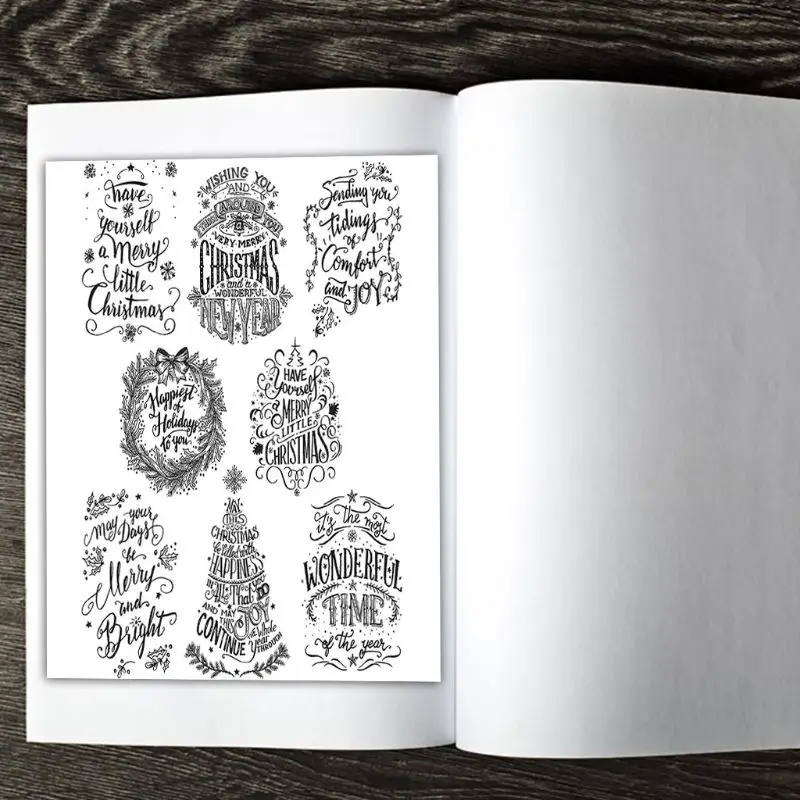 have
yourself
a Merry
little
Christmas
WISHING YOU
AND
THOSE AROUND YOU
A
VERY MERRY
CHRISTMAS
and a
WONDERFUL
NEW YEAR
Sending you
tidings
of
Comfort
and JOY
Happiest
of
Holidays
to you
HAVE
Yourself
A
MERRY
LITTLE
CHRISTMAS
may your
Days
be
Merry
and
Bright
MAY
THIS
CHRISTMAS
be filled with
HAPPINESS
in All That You DO
AND MAY
THIS JOY
CONTINUE
the whole
Year THROUGH
it's the most
WONDERFUL
TIME
of the year